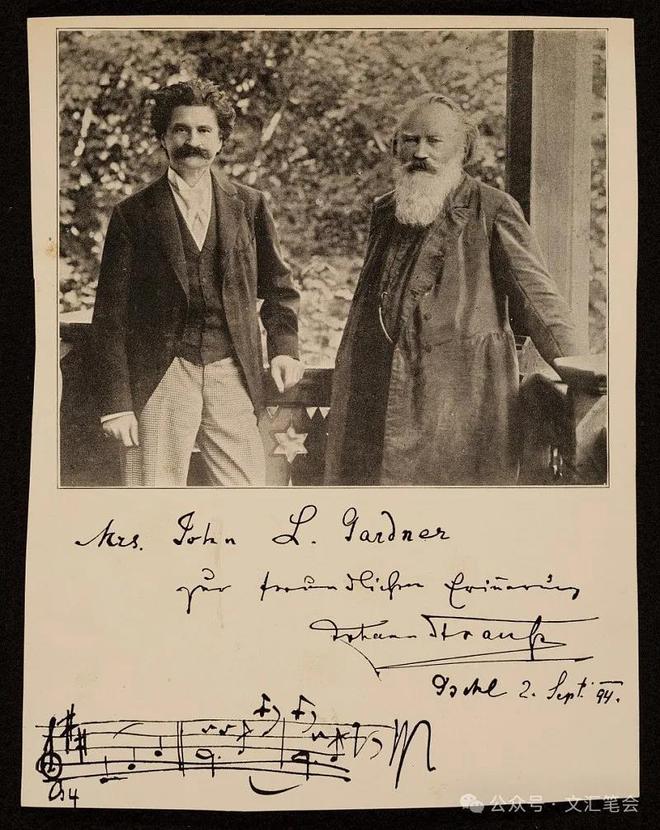 Mrs. John L. Gardner
zur freundlichen Erinnerung
Johann Strauß
Ischl 2. Sept. 94.
公众号 · 文汇笔会